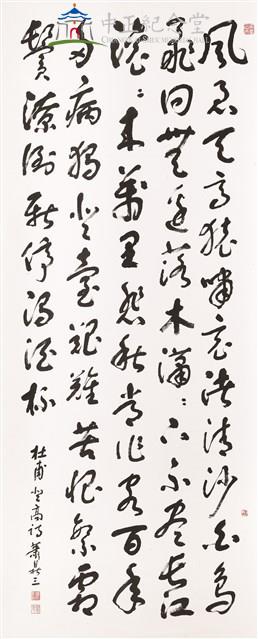 中正紀念堂
風急天高猿嘯哀渚清沙白鳥
飛回無邊落木瀟〻下不盡長江
滾〻來萬里悲秋常作客百年
多病獨登臺艱難苦恨繁霜
鬢潦倒新停濁酒杯
杜甫登高詩